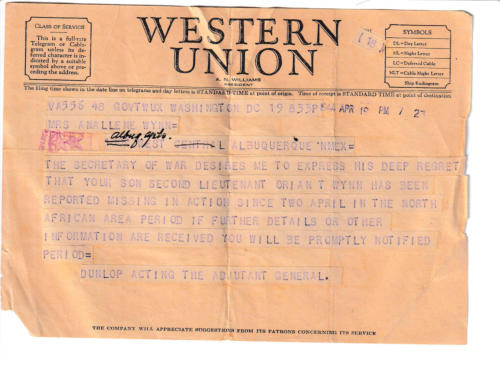 CLASS OF SERVICE
This is a full-rate
Telegram or Cable-
gram unless its de-
ferred character is in-
dicated by a suitable
symbol above or pre-
ceding the address.
WESTERN
UNION
A. N. WILLIAMS
PRESIDENT
SYMBOLS
DL=Day Letter
NL=Night Letter
LC=Deferred Cable
NLT=Cable Night Letter
Ship Radiogram
The filing time shown in the date line on telegrams and day letters is STANDARD TIME at point of origin. Time of receipt is STANDARD TIME at point of destination
VA556 48 GOVT=WUX WASHINGTON DC 19 833P
APR 19 PM 7 2
MRS ANALLENE WYNN=
CENTRAL ALBUQUERQUE NMEX=
THE SECRETARY OF WAR DESIRES ME TO EXPRESS HIS DEEP REGRET
THAT YOUR SON SECOND LIEUTENANT ORIAN T WYNN HAS BEEN
REPORTED MISSING IN ACTION SINCE TWO APRIL IN THE NORTH
AFRICAN AREA PERIOD IF FURTHER DETAILS OR OTHER
INFORMATION ARE RECEIVED YOU WILL BE PROMPTLY NOTIFIED
PERIOD=
DUNLOP ACTING THE ADJUTANT GENERAL.
THE COMPANY WILL APPRECIATE SUGGESTIONS FROM ITS PATRONS CONCERNING ITS SERVICE